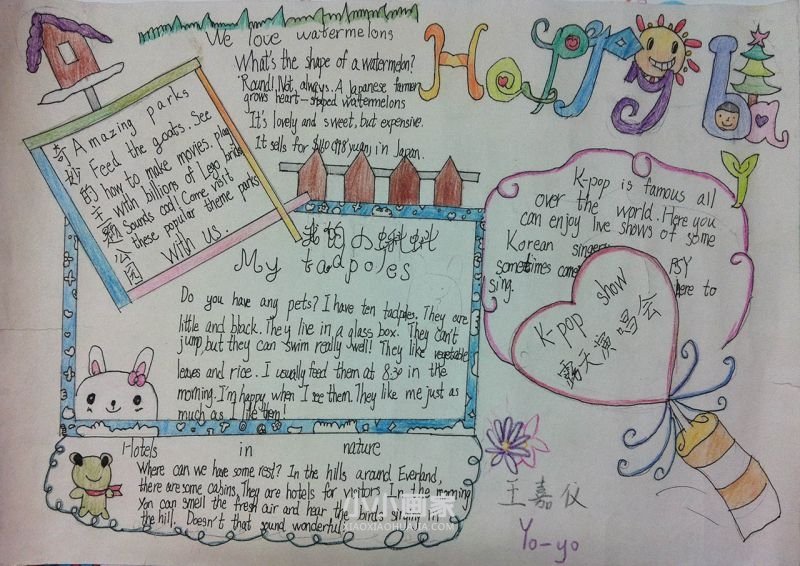 We love watermelons
What's the shape of a watermelon?
Round! Not always. A Japanese farmer
grows heart-shaped watermelons
It's lovely and sweet, but expensive.
It sells for yuan) in Japan.
Happy
奇妙的主题公园
Amazing parks
Feed the goats. See
how to make movies. play
with billions of Lego bricks
Sounds cool! Come visit
these popular theme parks
with us.
我的小蝌蚪
My tadpoles
Do you have any pets? I have ten tadples. They are
little and black. They live in a glass box. They can't
jump, but they can swim really well! They like vegetable
leaves and rice. I usually feed them at 8:30 in the
morning. I'm happy when I see them. They like me just as
much as I like them!
K-pop is famous all
over the world. Here you
can enjoy live shows of some
Korean singers
sometimes come here to
PSY
sing.
K-pop show
露天演唱会
Hotels in nature
Where can we have some rest? In the hills around Everland,
there are some cabins. They are hotels for visitors. In the morning
You can smell the fresh air and hear the birds singing
the hill. Doesn't that sound wonderful
小小画家
XIAOXIAOHUAJIA.COM
王嘉仪
Yo-yo